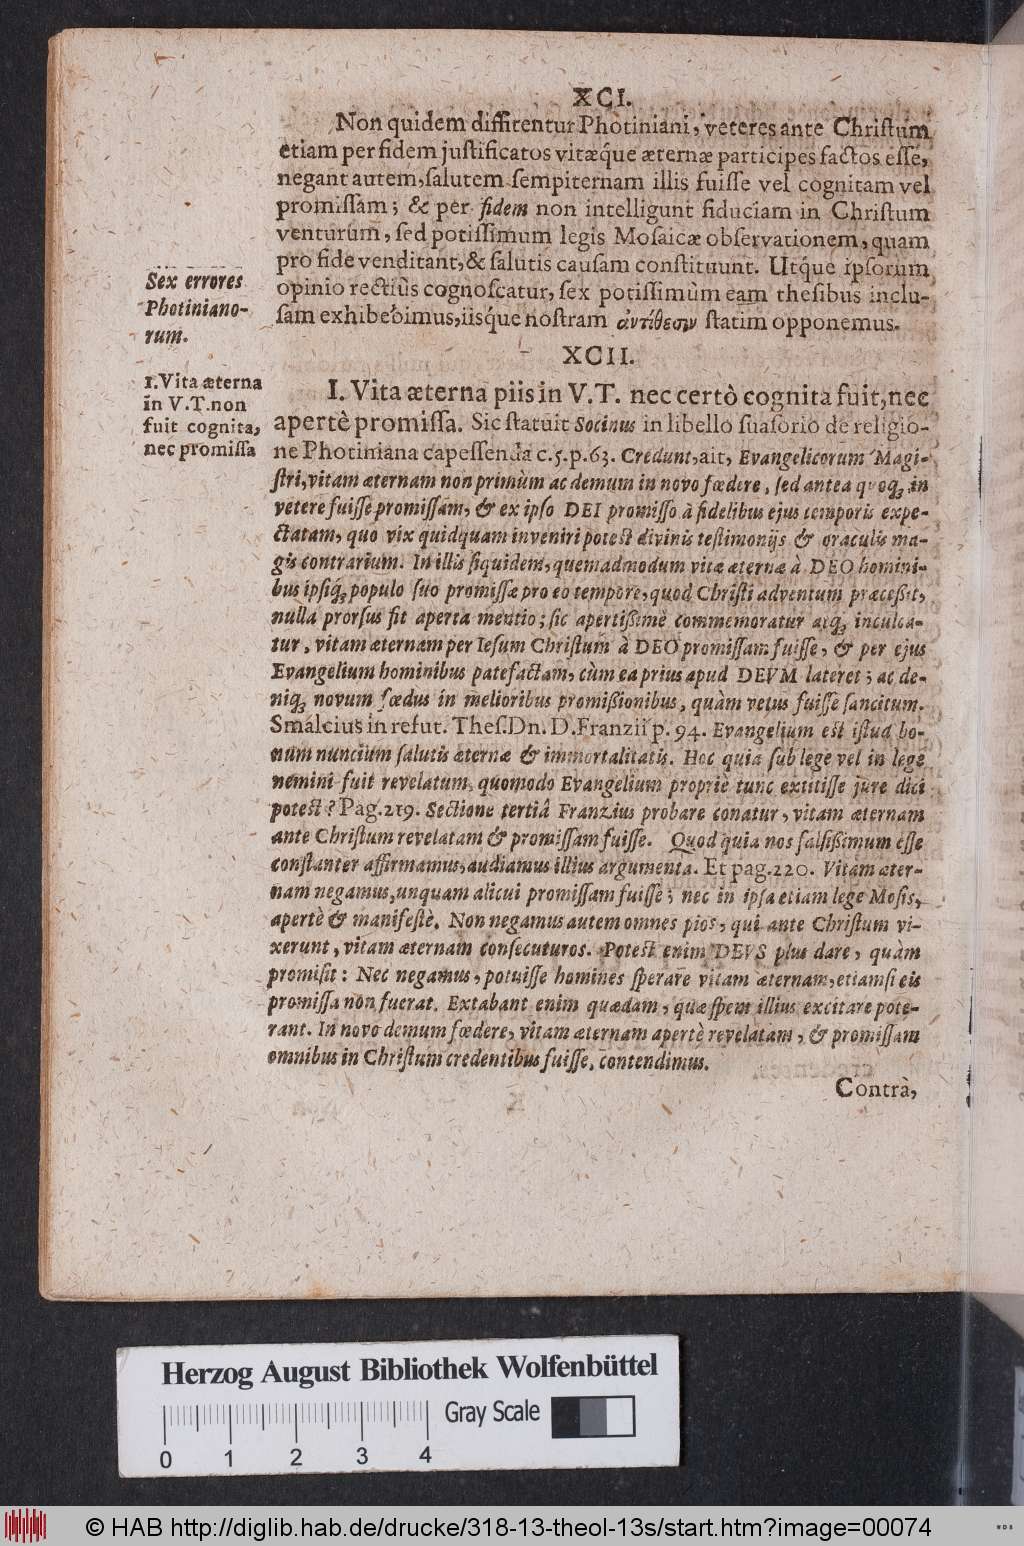 XCI.
Non quidem diffitentur Photiniani, veteres ante Christum
etiam per fidem justificatos vitæq́ue æternæ participes factos esse,
negant autem, salutem sempiternam illis fuisse vel cognitam vel
promissam; & per fidem non intelligunt fiduciam in Christum
venturum, sed potissimum legis Mosaicæ observationem, quam
pro fide venditant, & salutis causam constituunt. Utq́ue ipsorum
opinio rectiùs cognoscatur, sex potissimùm eam thesibus inclu-
sam exhibebimus, iisq́ue nostram ἀντίθεσιν statim opponemus.
Sex errores
Photiniano-
rum.
XCII.
1. Vita æterna
in V.T. non
fuit cognita,
nec promissa
I. Vita æterna piis in V.T. nec certò cognita fuit, nec
apertè promissa. Sic statuit Socinus in libello suasorio de religio-
ne Photiniana capessenda c.5.p.63. Credunt, ait, Evangelicorum Magi-
stri, vitam æternam non primùm ac demum in novo fœdere, sed antea quoq; in
vetere fuisse promissam, & ex ipso DEI promisso à fidelibus ejus temporis expe-
ctatam, quo vix quidquam inveniri potest divinis testimonijs & oraculis ma-
gis contrarium. In illis siquidem, quemadmodum vitæ æternæ à DEO homini-
bus ipsiq; populo suo promissæ pro eo tempore, quod Christi adventum præceßit,
nulla prorsus fit aperta mentio; sic apertißimè commemoratur atq; inculca-
tur, vitam æternam per Iesum Christum à DEO promissam fuisse, & per ejus
Evangelium hominibus patefactam, cùm ea prius apud DEVM lateret; ac de-
niq; novum fœdus in melioribus promißionibus, quàm vetus fuisse sancitum.
Smalcius in refut. Thes. Dn. D. Franzii p. 94. Evangelium est istud bo-
num nuncium salutis æternæ & immortalitatis. Hoc quia sub lege vel in lege
nemini fuit revelatum, quomodo Evangelium propriè tunc extitisse jure dici
potest? Pag. 219. Sectione tertiâ Franzius probare conatur, vitam æternam
ante Christum revelatam & promissam fuisse. Quod quia nos falsißimum esse
constanter affirmamus, audiamus illius argumenta. Et pag. 220. Vitam æter-
nam negamus, unquam alicui promissam fuisse; nec in ipsa etiam lege Mosis,
apertè & manifestè. Non negamus autem omnes pios, qui ante Christum vi-
xerunt, vitam æternam consecuturos. Potest enim DEVS plus dare, quàm
promisit: Nec negamus, potuisse homines sperare vitam æternam, etiamsi eis
promissa non fuerat. Extabant enim quædam, quæ spem illius excitare pote-
rant. In novo demum fœdere, vitam æternam apertè revelatam, & promissam
omnibus in Christum credentibus fuisse, contendimus.
Contrà,
Herzog August Bibliothek Wolfenbüttel
Gray Scale
0 1 2 3 4
© HAB http://diglib.hab.de/drucke/318-13-theol-13s/start.htm?image=00074